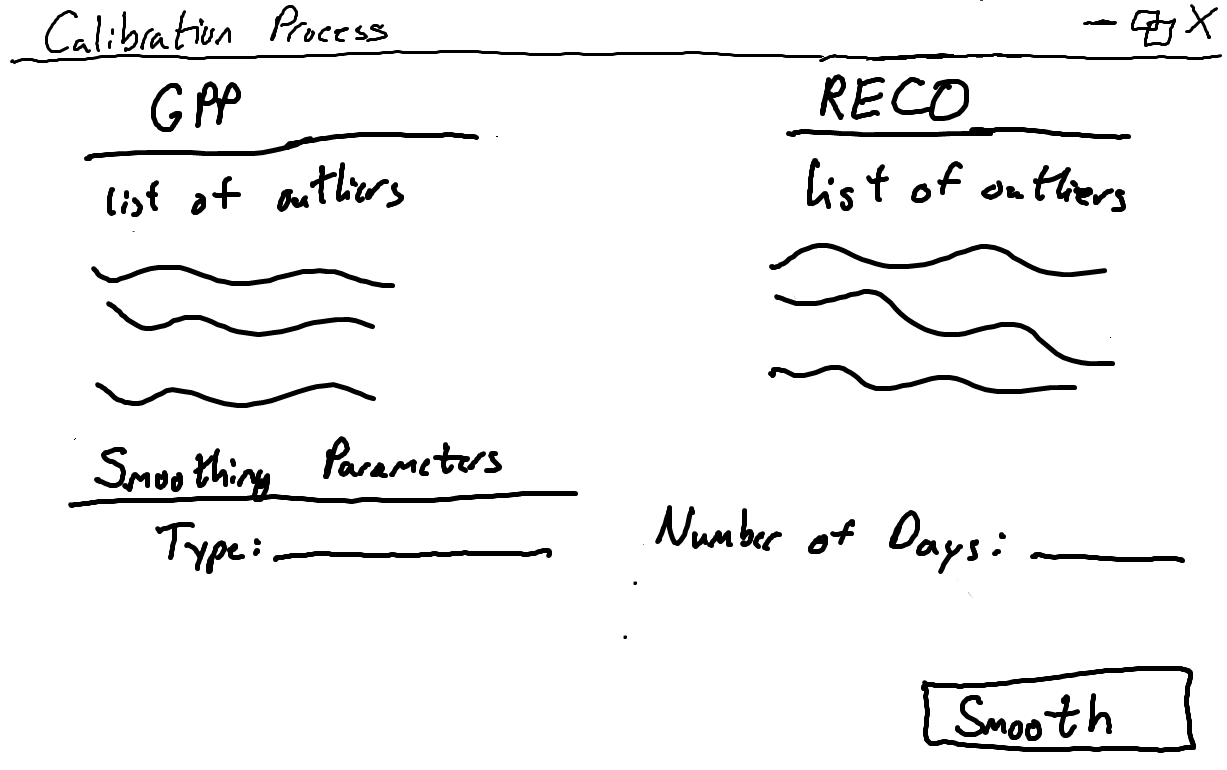 Calibration Process
GPP
list of outliers
RECO
list of outliers
Smoothing Parameters
Type:
Number of Days:
Smooth